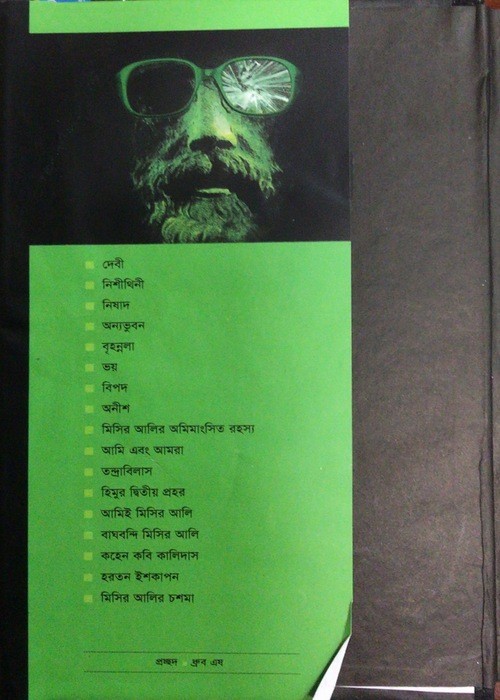 দেবী
নিশীথিনী
নিষাদ
অন্যভুবন
বৃহন্নলা
ভয়
বিপদ
অনীশ
মিসির আলির অমিমাংসিত রহস্য
আমি এবং আমরা
তন্দ্রাবিলাস
হিমুর দ্বিতীয় প্রহর
আমিই মিসির আলি
বাঘবন্দি মিসির আলি
কহেন কবি কালিদাস
হরতন ইশকাপন
মিসির আলির চশমা
প্রচ্ছদ ধ্রুব এষ